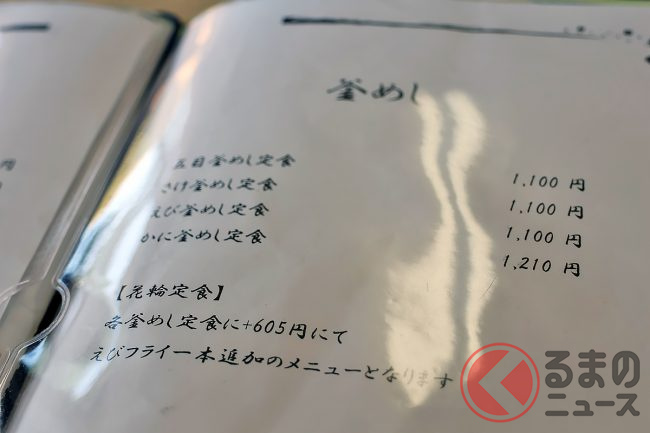 釜めし
五目釜めし定食 1,100 円
さけ釜めし定食 1,100 円
えび釜めし定食 1,100 円
かに釜めし定食 1,210 円
【花輪定食】
各釜めし定食に+605円にて
えびフライ一本追加のメニューとなります
円
くるまの
ニュース